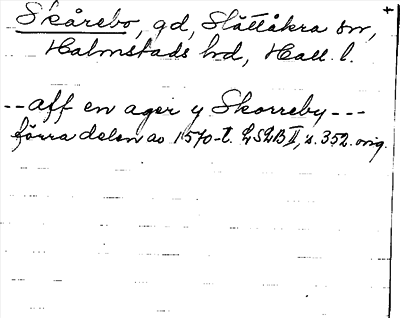 Skårebo, gd, Slättåkra sn,
Halmstads hd, Hall. l.
-- aff en ager y Skorreby ---
förra delen av 1570-t. LSLB II, s. 352. orig.